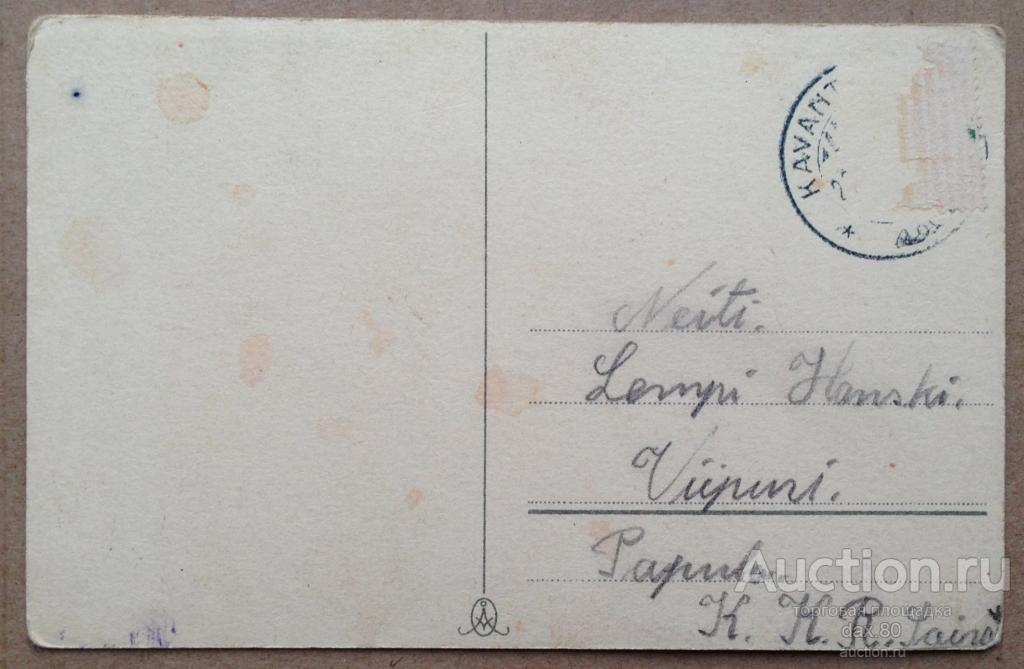 KAVANT
Neiti.
Lempi Hanski.
Viipuri.
K. K. R.
Auction.ru
торговая площадка
dax.80
auction.ru